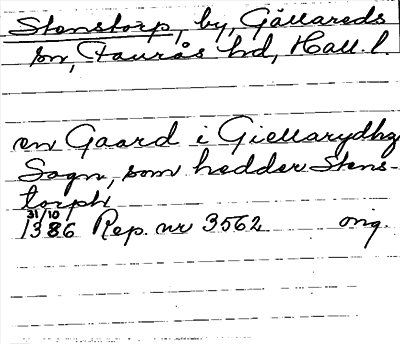 Stenstorp, by, Gällareds
sn, Faurås hd, Hall. l.
en Gaard i Giellarydhz
Sogn, som hedder Stens-
torph
31/10
1386 Rep. nr 3562 orig.